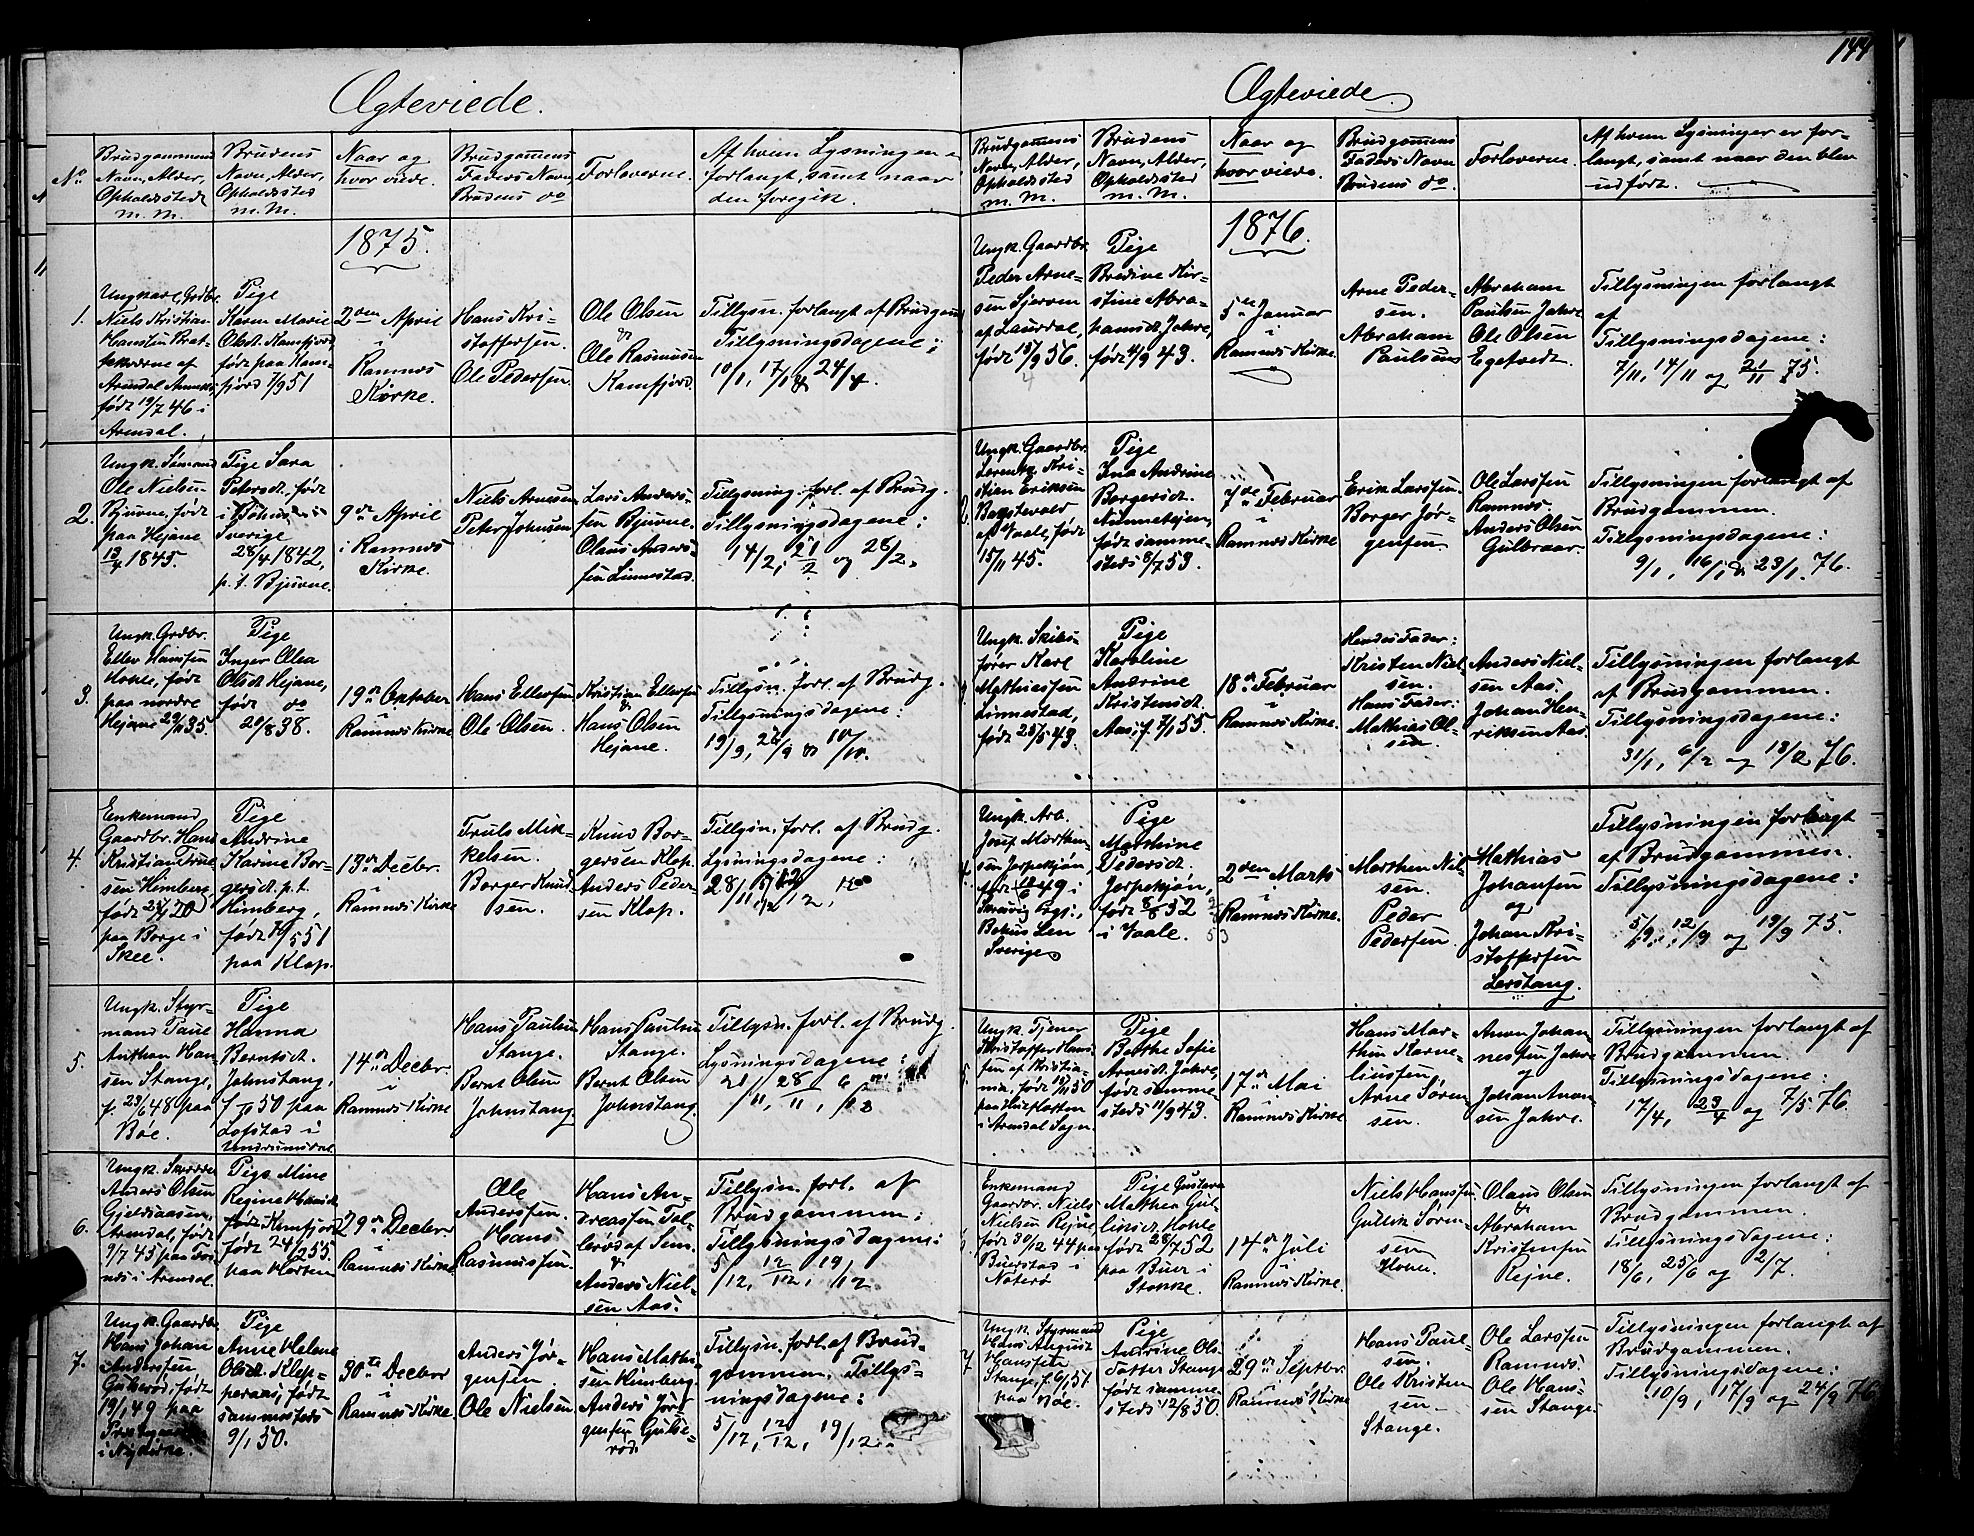 144
Ægteviede.
No
Brudgommens
Navn, Alder,
Opholdssted
m. M.
Brudens
Navn, Alder,
Opholdssted
m. M.
Naar og
hvor viede.
Brudgommens
Faders Navn
Brudens do
Forloverne.
Af hvem Lysningen er
forlangt, samt naar
den foregik.
1875.
1.
Ungkarl, Grdbr.
Niels Kristian
Hansen
af
Arendal
født 19/7 46 i
Arendal.
Pige
Karen Marie
Olsdt. Kamfjord
født paa Kam-
fjord 7/9 51
2den April
i
Ramnes
Kirke.
Hans Kri-
stoffersen.
Ole Pedersen.
Ole Olsen
&
Ole Rasmussen
Kamfjord.
Tillysn. forlangt af Brudgom
Tillysningsdagene:
10/1, 17/1 & 24/1.
2.
Ungk. Sømand
Ole Nielsen
Bjuvne, født
paa Hejane
13/4 1845.
Pige Sara
Petersdt. født
i
Sverige
28/4 1842,
p. t. Bjuvne.
9de April
i Ramnes
Kirke.
Niels Arnesen
Peter Johnsen
Lars Anders-
sen Bjuvne.
Olaus Anders-
sen Linnestad.
Tillysning. forl. af Brudg.
Tillysningsdagene:
14/2, 21/2 og 28/2.
3.
Ungk. Grdbr.
Ellev Hansen
Hotle, født
paa nordre
Hejane 35
Pige
Inger Olea
Olsdt. Hejane,
født do
20/8 38.
19de Oktober
i
Ramnes Kirke
Hans Ellefsen
Ole Olsen.
Kristian Ellefsen
&
Hans Olsen
Hejane.
Tillysn. forl. af Brudg.
Tillysningsdagene:
19/9, 26/9 & 10/10.
4.
Enkemand
Gaardbr. Hans
Kristian Trul-
sen Himberg,
født 20
paa Borge i
Skee.
Pige
Andrine
Karine Bor-
gersdt. p. t.
Himberg,
født 51
paa Klop.
13de Decbr.
i
Ramnes Kirke
Truls Mik-
kelsen.
Borger Knud
sen.
Knud Bor-
gersen Klop.
Anders Peder
sen Klop.
Tillysn. forl. af Brudg.
Lysningsdagene:
28/11, 5/12, 12/12,
5.
Ungk. Styr-
mand Paul
Anthon Han
sen Stange,
f. 23/6 48 paa
Bøe.
Pige
Hanna
Berntsdt.
Johnstang,
f 50 paa
Lofstad i
Undrumsdal.
14de Decbr.
i
Ramnes Kirke
Hans Paulsen
Stange.
Bernt Olsen
Johnstang
Hans Paulsen
Stange.
Bernt Olsen
Johnstang
Tillysn. forl. af Brudg.
Lysningsdagene:
21/11, 28/11,
6.
Ungk. Skrædder
Anders Olsen
Gjeldaasen,
Arendal, født
9/7 45 paa
i Arendal.
Pige Mine
Regine Hansdt.
født Kamfjord
født 24/2 55
paa Horten
29de Decbr.
i
Ramnes Kirke
Ole
Anderssen.
Hans
Rasmussen.
Hans An-
dreassen Føl-
lerød af Sem.
&
Anders Niel-
sen Aas.
Tillysn. forl. af
Brudgommen:
Tillysningsdagene:
5/12, 12/12, 19/12.
7.
Ungk. Gaardbr
Hans Johan
Anderssen
Gulserød, født
19/1 49 paa
Prestegaarden
i Nykirke.
Pige
Anne Helene
Olsdt. Klop-
peraas, født
sammesteds
9/1 50.
30te Decbr
i
Ramnes Kirke.
Anders Jør-
gensen
Ole Nielsen
Hans Mathi-
sen Himberg
Anders Jør-
gensen Gulse-
rød.
Tillysn. forl. af Brud-
gommen. Tillys-
ningsdagene:
5/12, 12/12, 19/12.
Ægteviede.
Brudgommens
Navn, Alder,
Opholdssted
m. M.
Brudens
Navn, Alder,
Opholdssted
m. M.
Naar og
hvor viede.
Brudgommens
Faders Navn
Brudens do
Forloverne.
Af hvem Lysninger er for-
langt, samt naar den blev
udført.
1876.
Ungk. Gaardbr.
Peder Arne-
sen
af Laurdal,
født 15/9 56.
Pige
Bredine Kir-
stine Abra-
hamsdt. Jahre,
født 4/9 43.
5te Januar
i
Ramnes Kirke.
Arne Peder-
sen.
Abraham
Paulsen
Abraham
Paulsen Jahre
Ole Olsen
Egetvedt.
Tillysningen forlangt
af
Tillysningsdagene:
7/11, 14/11 og 21/11 75.
2.
Ungk. Gaardbr.
Lorentz Kri-
stian Eriksen
af Vaale, født
15/11 45.
Pige
Ina Andrine
Borgersdt.
født samme-
steds 8/7 53.
7de Februar
i
Ramnes Kirke
Erik Larssen.
Borger Jør-
gensen.
Ole Larssen
Ramnes.
Anders Olsen
Gulsraar.
Tillysningen forlangt af
Brudgommen.
Tillysningsdagene:
9/1, 16/1 & 23/1. 76.
Ungk. Skibs-
fører Karl
Mathiassen
Linnestad,
født 28/5 43.
Pige
Karoline
Andrine
Kristensdt.
Aas, f. 55.
18de Februar
i
Ramnes Kirke.
Hendes Fader:
Kristen Niel-
sen.
Hans Fader:
Mathias Ol-
sen.
Anders Niel-
sen Aas.
Johan Hen-
riksen Aas.
Tillysningen forlangt
af Brudgommen.
Tillysningsdagene:
31/1, 6/2 og 13/2 76.
4.
Ungk. Arb.
Josef Morthen-
sen Jerpekjøn,
født 49 i
Bohus Len
Sverige
Pige
Mathine
Pedersdt.
Jerpekjøn,
født 8/8 52
i Vaale. 53
2den Marts
i
Ramnes Kirke.
Morthen Niel-
sen.
Peder
Pedersen.
Mathias
Johansen
og
Johan Kri-
stoffersen
Lerstang.
Tillysningen forlangt
af Brudgommen.
Tillysningsdagene:
5/9, 12/9 og 19/9 75.
Ungk. Tjener
Kristoffer Hans-
sen af Kristia-
nia, født 50
i Arendal Sogn.
Pige
Berthe Sofie
Arnesdt. Jahre,
født samme
steds 11/9 43.
17de Mai
i
Ramnes Kirke.
Hans Mar-
thin Korne-
liussen
Arne Søren
sen.
Anon Johan-
nessen Jahre
og
Johan Anon-
sen Jahre.
Tillysningen forlangt af
Brudgommen.
Tillysningsdagene:
17/4, 23/4 og 7/5. 76.
Enkemand
Gaardbr. Niels
Nielsen Rejne,
født 30/12 44 paa
Buerstad i
Nøterø
Pige Gustava
Mathea Gul-
liksdt. Hotle
født 28/7 52
paa Buer i
Stokke.
14de Juli
i
Ramnes Kirke.
Niels Hanssen
Gullik Søren-
sen
Hotle.
Olaus Olsen
&
Abraham
Kristensen
Rejne.
Tillysningen forlangt af
Brudgommen.
Tillysningsdagene:
18/6, 25/6 og 2/7.
7
Ungk. Styrmand
Hans August
Hanssen
Stange, f. 6/1 51
paa Bøe.
Pige
Andrine Ols-
datter Stange
født samme
steds 12/8 50.
29de Septbr.
i
Ramnes Kirke
Hans Paul-
sen.
Ole Kristen
sen
Stange.
Ole Larssen
Ramnes.
Ole Hans-
sen Stange.
Tillysningen forlangt af
Brudgommen.
Tillysningsdagene:
10/9, 17/9 og 24/9 76